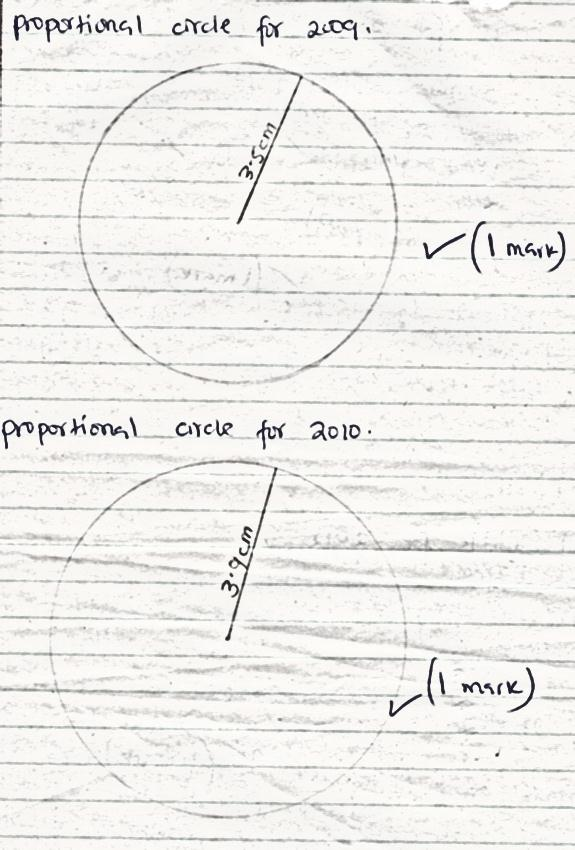 proportional circle for 2009.
3.5cm
✓ (1 mark)
proportional circle for 2010.
3.9cm
✓ (1 mark)